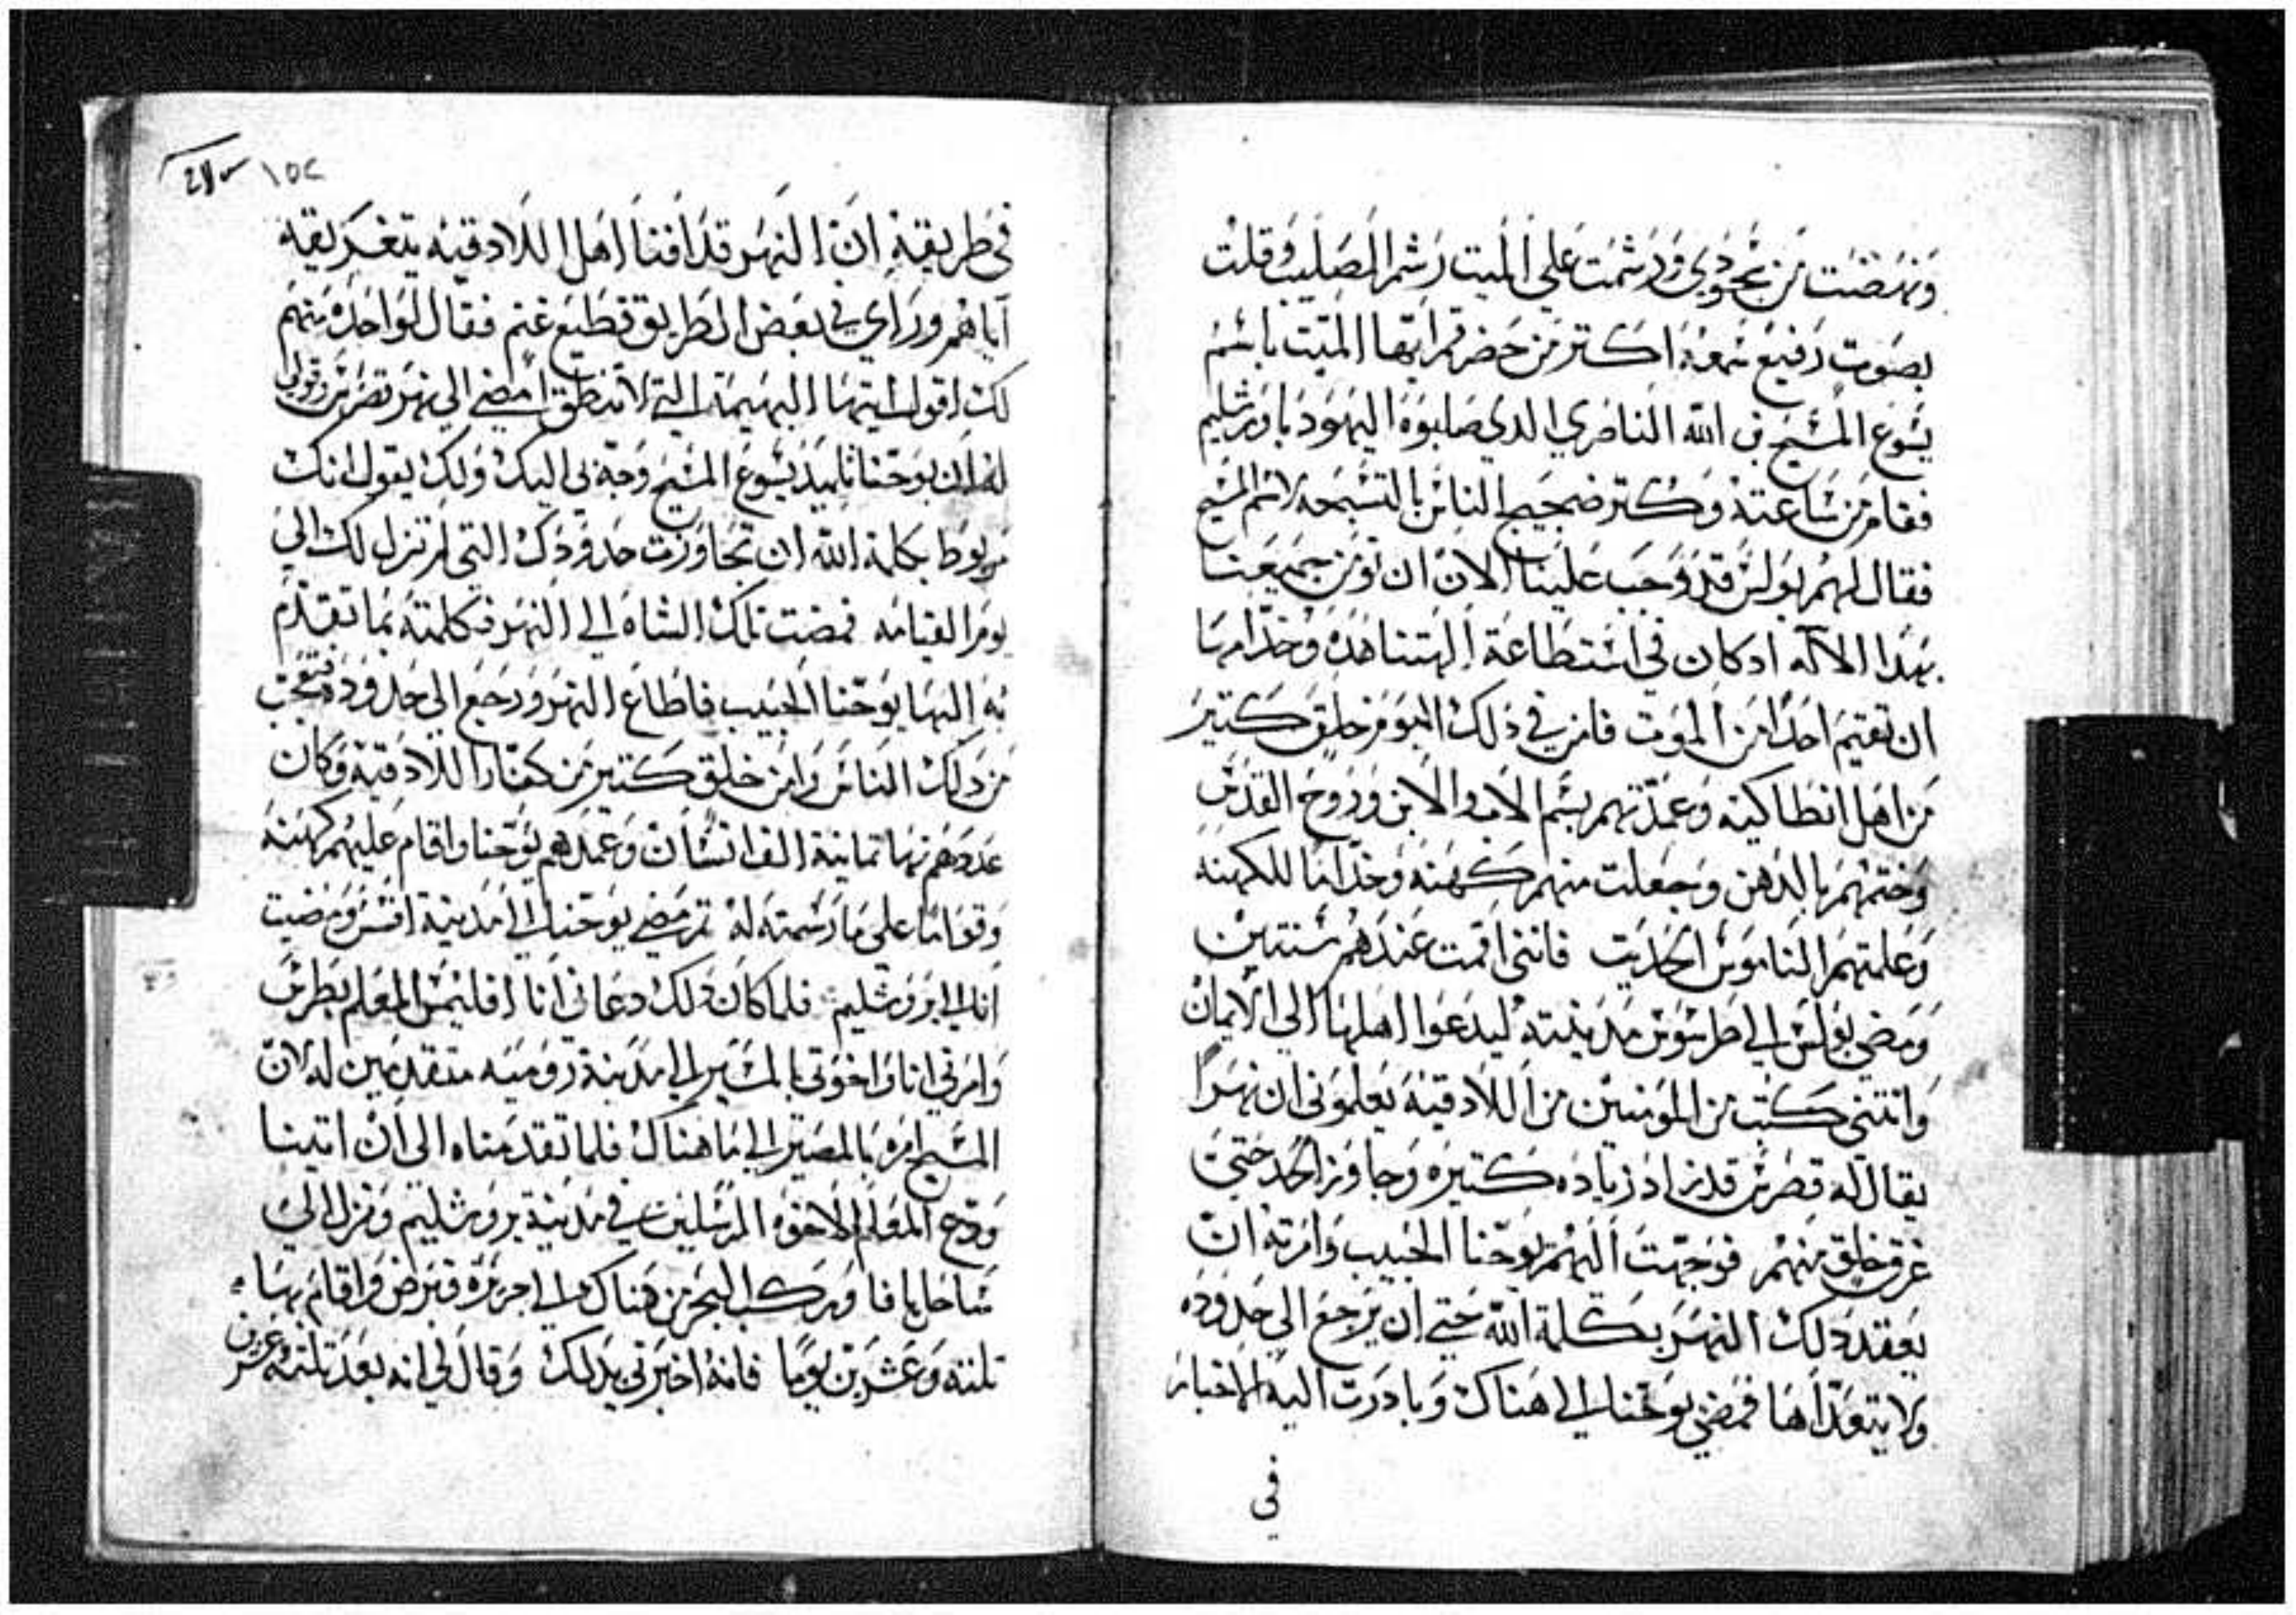 ونهضت من سجودي ورشمت علي الميت رشم الصليب وقلت
بصوت رفيع سمعه اكتر من حضر قم ايها الميت باسم
يسوع المسيح بن الله الناصري الدي صلبوه اليهود باورشليم
فقام من ساعته وكتر ضجيج الناس بالتسبحه لاسم المسيح
فقال لهم بولس قد وجب علينا الان ان نومن جميعنا
بهدا الاله ادكان في استطاعة الهتنا هده وخدامها
ان تقيم احدا من الموت فامن في دلك اليوم خلق كتير
من اهل انطاكيه وعمدتهم بسم الاب والابن وروح القدس
وختمتهم بالدهن وجعلت منهم كهنه وخداما للكهنه
وعلمتهم الناموس الحديت فانني اقمت عندهم سنتين
ومضي بولس الي طرسوس مدينته ليدعوا اهلها الي الايمان
واتتني كتب من المومنين من اللادقيه يعلموني ان نهرا
يقال له قطرس قد زاد زياده كتيره وجاوز الحد حتي
غرق خلق منهم فوجهت اليهم يوحنا الحبيب وامرته ان
يعقد دلك النهر بكلمة الله حتي ان يرجع الي حدوده
ولا يتعداها فمضي يوحنا الي هناك وبادرت اليه الاخبار
في
١٥٢
في طريقه ان النهر قد افنا اهل اللادقيه بتغريقه
اياهم وراي في بعض الطريق قطيع غنم فقال لواحده منهم
لك اقول ايتها البهيمة التي لا تنطق امضي الي نهر قطرس وقولي
له ان يوحنا تلميد يسوع المسيح وجه بي اليك ولك يقول انك
مربوط بكلمة الله ان تجاوزت حدودك التي لم تزل لك الي
يوم القيامه فمضت تلك الشاه الي النهر فكلمته بما تقدم
به اليها يوحنا الحبيب فاطاع النهر ورجع الي حدوده فتعجب
من دلك الناس وامن خلق كتير من كفار اللادقية وكان
عددهم نها تمانية الف انسان وعمدهم يوحنا واقام عليهم كهنه
وقواما علي ما رسمته له تم مضي يوحنا الي مدينة افسس ومضيت
انا الي يروشليم فلما كان دلك دعاني انا اقليمس المعلم بطرس
وامرني انا واخوتي بالمسير الي مدينة روميه متقدمين له لان
المسيح امره بالمصير الي ما هناك فلما تقدمناه الي ان اتينا
ودع المعلم الاخوه المرسلين في مدينة يروشليم ونزل الي
ساحل يافا وركب البحر من هناك الي جزيرة قبرص واقام بها
تلته وعشرين يوما فانه اخبرني بدلك وقال لي انه بعد تلته عشرين